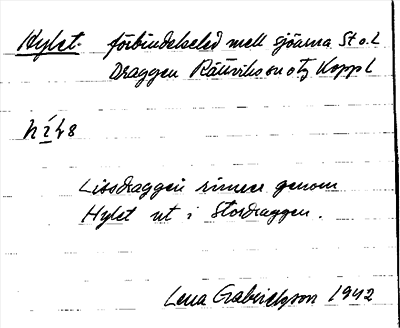 Hylet. förbindelseled mell sjöarna St o. L
Draggen Rättviks sn o tg Koppl
Lissdraggen rinner genom
Hylet ut i Stordraggen.
Lena Gabrielsson 1942